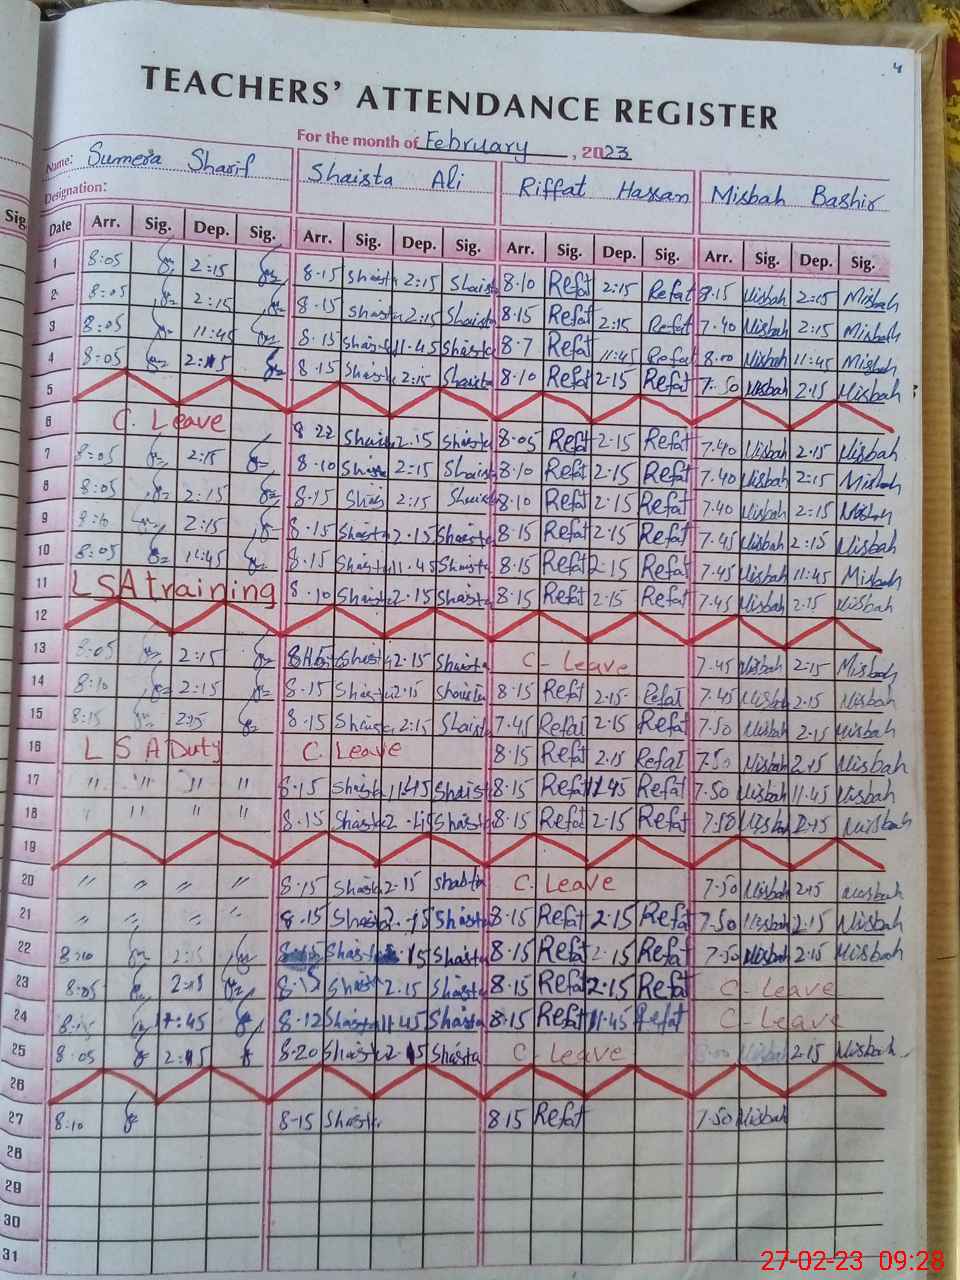 4
TEACHERS' ATTENDANCE REGISTER
For the month of February, 2023
Name: Sumera Sharif Shaista Ali Riffat Hassan Misbah Bashir
Designation:
Sig.
Date Arr. Sig. Dep. Sig. Arr. Sig. Dep. Sig. Arr. Sig. Dep. Sig. Arr. Sig. Dep. Sig.
1 8:05 2:15 8.15 Shaista 2:15 Shaista 8.10 Refat 2:15 Refat 8.15 Misbah 2:15 Misbah
2 8:05 2:15 8.15 Shaista 2:15 Shaista 8.15 Refat 2:15 Refat 7.40 Misbah 2:15 Misbah
3 8:05 11:45 8.15 Shaista 11.45 Shaista 8.7 Refat 11:45 Refat 8:00 Misbah 11:45 Misbah
4 8:05 2:15 8.15 Shaista 2:15 Shaista 8.10 Refat 2.15 Refat 7.50 Misbah 2:15 Misbah
5
6 C. Leave 8 22 Shaista 2.15 Shaista 8.05 Refat 2.15 Refat 7.40 Misbah 2:15 Misbah
7 8:05 2:15 8.10 Shaista 2.15 Shaista 8.10 Refat 2.15 Refat 7.40 Misbah 2:15 Misbah
8 8:05 2:15 8.15 2.15 Shaista 8.10 Refat 2.15 Refat 7.40 Misbah 2:15 Misbah
9 2:15 8.15 Shaista 2.15 Shaista 8.15 Refat 2.15 Refat 7.45 Misbah 2:15 Misbah
10 8:05 11:45 8.15 Shaista 11.45 Shaista 8.15 Refat 2.15 Refat 7.45 Misbah 11:45 Misbah
11 LSA training 8.10 Shaista 2.15 Shaista 8.15 Refat 2.15 Refat 7.45 Misbah 2.15 Misbah
12
13 8:05 2:15 Shaista 2.15 Shaista C-Leave 7.45 Misbah 2:15 Misbah
14 8:10 2:15 8.15 Shaista 2.15 Shaista 8.15 Refat 2.15 Refat 7.45 Misbah 2.15 Misbah
15 8:15 2:15 8.15 Shaista 2:15 Shaista 7.45 Refat 2.15 Refat 7.50 Misbah 2.15 Misbah
16 L S A Duty C. Leave 8.15 Refat 2.15 Refat 7.50 Misbah 2.15 Misbah
17 " " " " 8.15 Shaista 11.45 Shaista 8.15 Refat 11.45 Refat 7.50 Misbah 11.45 Misbah
18 " " " " 8.15 Shaista 2.15 Shaista 8.15 Refat 2.15 Refat 7.50 Misbah 2.15 Misbah
19
20 " " " " 8.15 Shaista 2.15 Shaista C-Leave 7.50 Misbah 2.15 Misbah
21 " " " " 8.15 Shaista 2.15 Shaista 8.15 Refat 2.15 Refat 7.50 Misbah 2.15 Misbah
22 8:10 2:15 Shaista 15 Shaista 8.15 Refat 2.15 Refat 7.50 Misbah 2.15 Misbah
23 8:05 2:15 Shaista 2.15 Shaista 8.15 Refat 2.15 Refat C-Leave
24 :45 8.12 Shaista 11.45 Shaista 8.15 Refat 11.45 Refat C-Leave
25 8:05 2:15 8.20 Shaista 2.15 Shaista C-Leave 2:15 Misbah
26
27 8:10 8.15 Shaista 8.15 Refat 7.50 Misbah
28
29
30
31
27-02-23 09:28